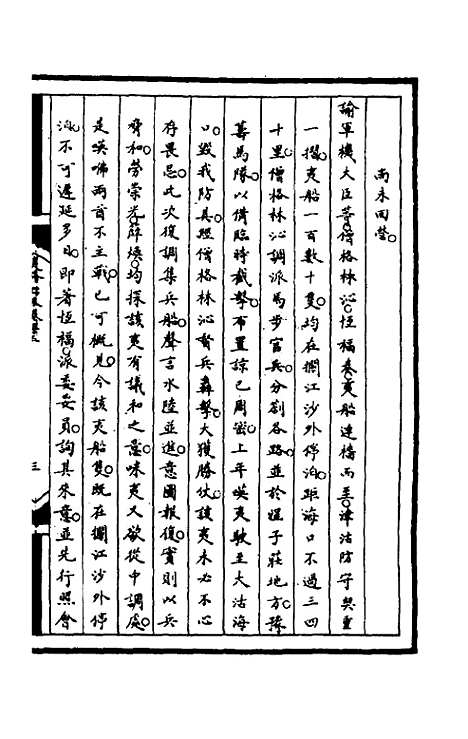 尚未回營
諭軍機大臣等僧格林沁恆福奏夷船連檣而至津沽防守契重
一摺夷船一百數十隻均在攔江沙外停泊距海口不過三四
十里僧格林沁調派馬步官兵分劄各路並於道子莊地方豫
籌馬隊以備臨時截擊布置諒已周密上年嘆夷駛至大沽海
口毀我防具經僧格林沁督兵轟擊大獲勝仗該夷未必不心
存畏忌此次復調集兵船聲言水陸並進意圖報復實則以兵
脅和勞崇光薛煥均探該夷有議和之意咪夷又欲從中調處
是嘆咈兩酋不主戰已可概見今該夷船隻既在攔江沙外停
泊不可遲延多日即著恆福派委妥員詢其來意並先行照會
三